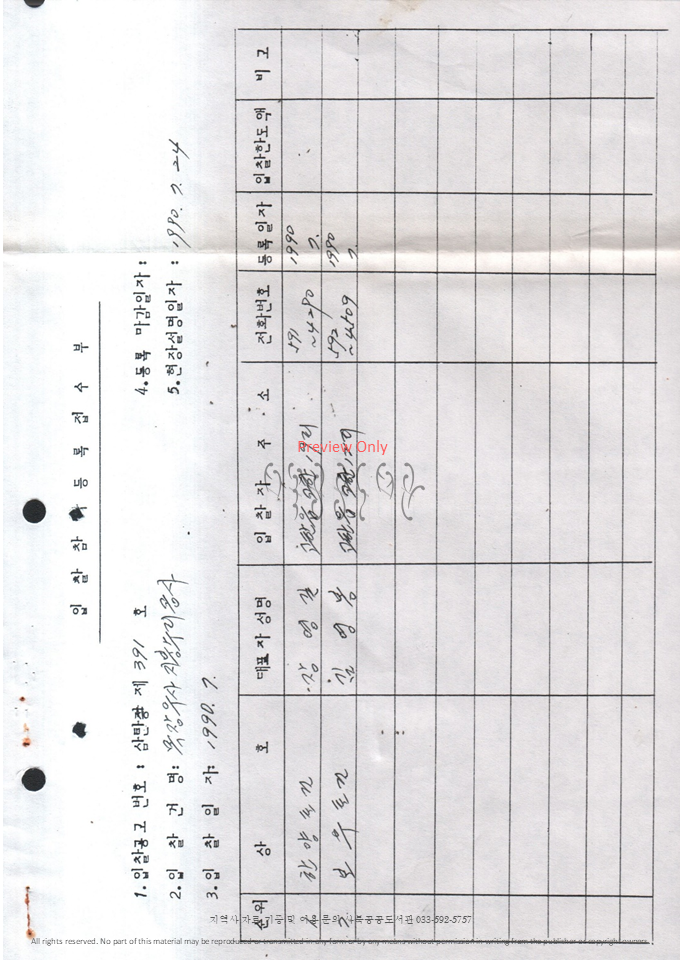 입 찰 참 가 등 록 접 수 부
1.입찰공고 번호 : 삼탄광 제 391 호
2.입 찰 건 명: 목장우사 지붕수리공사
3.입 찰 일 자: 1990. 7.
4.등록 마감일자 :
5.현장설명일자 : 1990. 7. 24
순위 상 호 대표자 성명 입 찰 자 주 소 전화번호 등록일자 입찰한도액 비 고
1 한양토건 영길 591 ~4280 1990 7.
2 보우토건 김영 592 ~4409 1990 7.
Preview Only
지역사 자료 기증 및 이용 문의 사북공공도서관 033-592-5757
All rights reserved. No part of this material may be reproduced or transmitted in any form or by any means without permission in writing from the publisher or copyright owners.